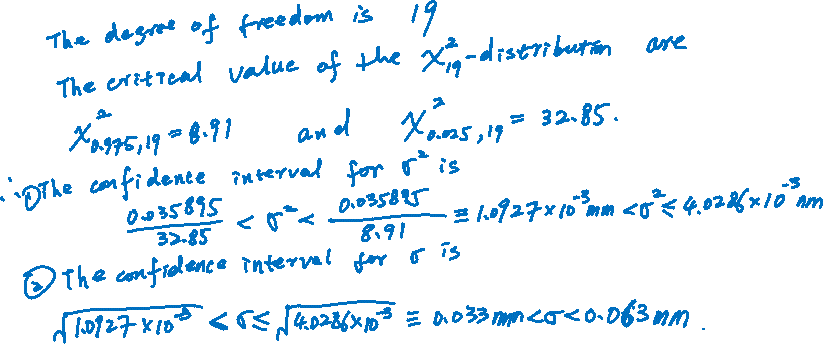 The degree of freedom is 19
The critical value of the χ²₁₉-distribution are
χ²₀.₉₇₅,₁₉ = 8.91 and χ²₀.₀₂₅,₁₉ = 32.85.
∴ ① The confidence interval for σ² is
0.035895/32.85 < σ² < 0.035895/8.91 ≡ 1.0927×10⁻³mm < σ² ≤ 4.0286×10⁻³mm
② The confidence interval for σ is
√1.0927×10⁻³ < σ ≤ √4.0286×10⁻³ ≡ 0.033mm<σ<0.063mm.